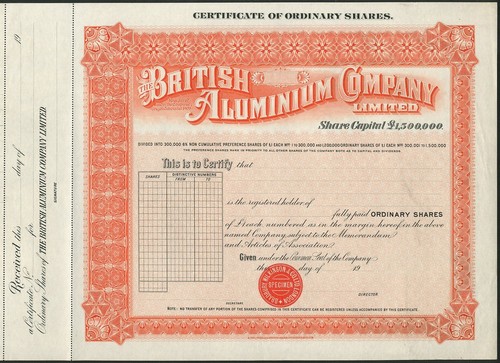 CERTIFICATE OF ORDINARY SHARES.
THE BRITISH
ALUMINIUM COMPANY
LIMITED
Share Capital £1,500,000.
DIVIDED INTO 300,000 6% NON CUMULATIVE PREFERENCE SHARES OF £1 EACH Nos 1 TO 300,000 AND 1,200,000 ORDINARY SHARES OF £1 EACH Nos 300,001 TO 1,500,000
THE PREFERENCE SHARES RANK IN PRIORITY TO ALL OTHER SHARES OF THE COMPANY BOTH AS TO CAPITAL AND DIVIDENDS.
This is to Certify that
SHARES
DISTINCTIVE NUMBERS
FROM TO
is the registered holder of
fully paid ORDINARY SHARES
of £1 each numbered as in the margin hereof in the above
named Company, subject to the Memorandum
and Articles of Association.
Given under the Common Seal of the Company
the day of 19
SPECIMEN
LONDON
SECRETARY
DIRECTOR
NOTE: NO TRANSFER OF ANY PORTION OF THE SHARES COMPRISED IN THIS CERTIFICATE CAN BE REGISTERED UNLESS ACCOMPANIED BY THIS CERTIFICATE.
Received this day of 19
a Certificate No for
Ordinary Shares of THE BRITISH ALUMINIUM COMPANY LIMITED
SIGNATURE